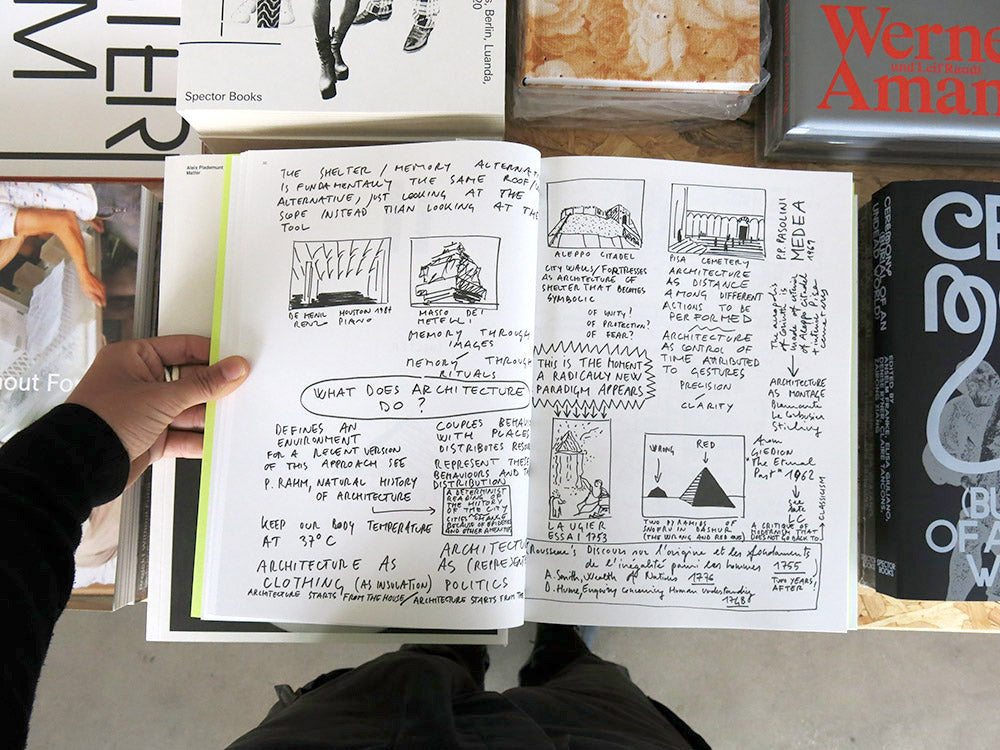 s, Berlin, Luanda,
20
Spector Books
Werne
und Leif Randt
Aman
IER
M
out Fo
THE SHELTER / MEMORY ALTERNAT
IS FUNDAMENTALLY THE SAME ROOF/
ALTERNATIVE, JUST LOOKING AT THE
SCOPE INSTEAD THAN LOOKING AT THE
TOOL
DE MENIL HOUSTON 1987
RENZO PIANO
MASSO DEI
METELLI
MEMORY THROUGH
IMAGES
MEMORY THROUGH
RITUALS
WHAT DOES ARCHITECTURE
DO?
DEFINES AN
ENVIRONMENT
FOR A RECENT VERSION
OF THIS APPROACH SEE
P. RAHM, NATURAL HISTORY
OF ARCHITECTURE
KEEP OUR BODY TEMPERATURE
AT 37°C
ARCHITECTURE AS
CLOTHING (AS INSULATION)
ARCHITECTURE STARTS FROM THE HOUSE / ARCHITECTURE STARTS FROM THE
COUPLES BEHAV
WITH PLACES
DISTRIBUTES RESO
REPRESENT THESE
BEHAVIOURS AND TH
DISTRIBUTION
A DETERMINIST
READING OF
THE HISTORY
OF THE CITY
CITIES CHANGE
BECAUSE OF EPIDEMIES
AND OTHER AMENITIES
ARCHITECTUR
AS (REPRESENT
POLITICS
ALEPPO CITADEL
CITY WALLS / FORTRESSES
AS ARCHITECTURE OF
SHELTER THAT BECOMES
SYMBOLIC
OF UNITY?
OF PROTECTION?
OF FEAR?
THIS IS THE MOMENT
A RADICALLY NEW
PARADIGM APPEARS
LAUGIER
ESSAI 1753
PISA CEMETERY
ARCHITECTURE
AS DISTANCE
AMONG DIFFERENT
ACTIONS TO BE
PERFORMED
ARCHITECTURE
AS CONTROL OF
TIME ATTRIBUTED
TO GESTURES
PRECISION
CLARITY
WRONG RED
TWO PYRAMIDS OF
SNEFRU IN DASHUR
(THE WRONG AND RED ONE)
P.P. PASOLINI
MEDEA
1969
The acropolis
of Corinth is
made of exterior
of Aleppo Citadel
+ interior Pisa
cemetery
ARCHITECTURE
AS MONTAGE
Bramante
Le Corbusier
Stirling
GIEDION
"The Eternal
Past" 1962
see
late
LC
CLASSICISM
A CRITIQUE OF
MODERNISM THAT
DOES NOT GO BACK TO
Rousseau's Discours sur l'origine et les fondaments
de l'inégalité parmi les hommes 1755
A. Smith, Wealth of Nations 1776
D. Hume, Enquiry Concerning Human Understanding
1748
TWO YEARS
AFTER!
EDITED BY
ANSELM FRANKE, ELISA GIULIANO,
DENISE RYNER, CLAIRE TANCONS,
ZAIRONG XIANG
CEREMONY
(BURIAL OF AN
UNDEAD WORLD)
CE
(BU
OF A
W
SPECTOR
BOOKS